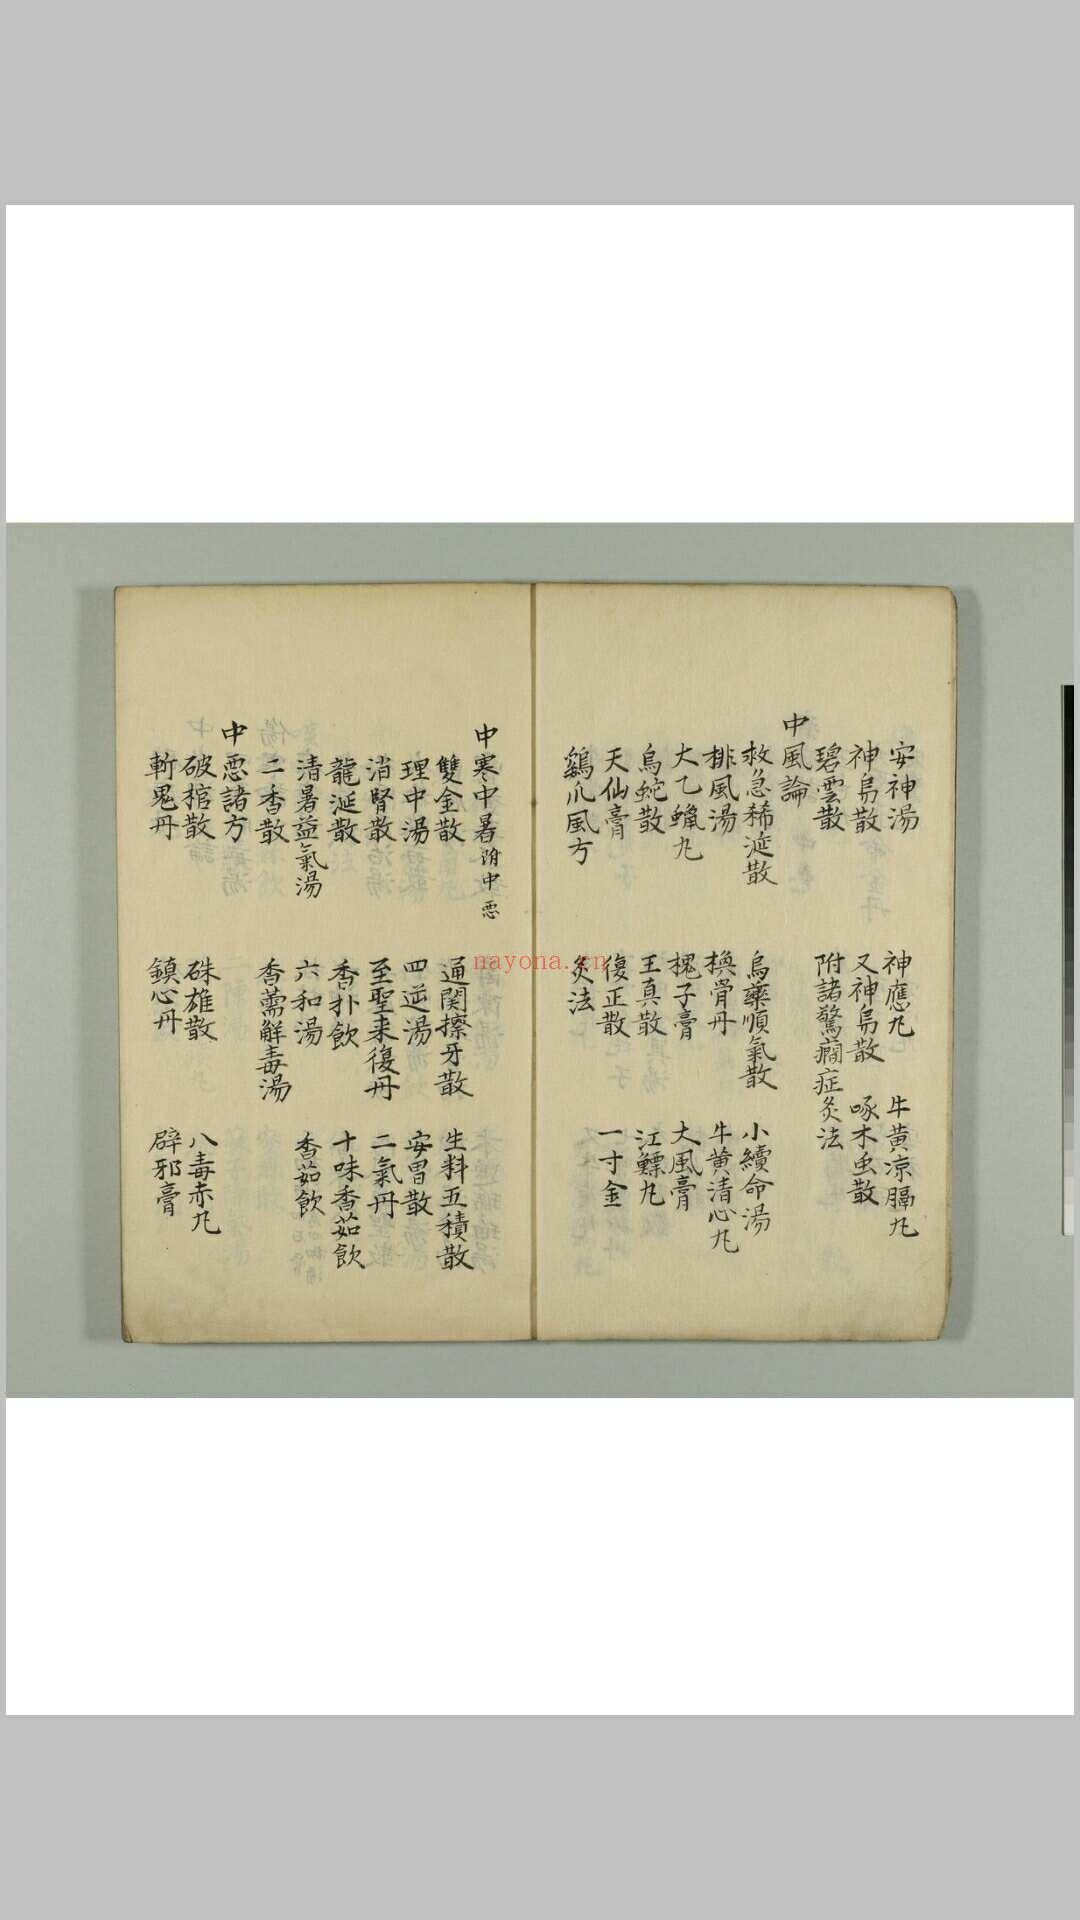 安神湯　神應丸　牛黄涼膈丸
神烏散　又神烏散　啄木虫散
碧雲散　附諸驚癇症灸法
中風論
救急稀涎散　烏藥順氣散　小續命湯
排風湯　換骨丹　牛黄清心丸
大乙蠟丸　槐子膏　大風膏
烏蛇散　王真散　江鰾丸
天仙膏　復正散　一寸金
鷄爪風方　灸法
中寒中暑附中惡
雙金散　通関擦牙散　生料五積散
理中湯　四逆湯　安胃散
消腎散　至聖来復丹　二氣丹
龍涎散　香朴飲　十味香茹飲
清暑益氣湯　六和湯　香茹飲
二香散　香薷解毒湯
中惡諸方
破棺散　硃雄散　八毒赤丸
斬鬼丹　鎮心丹　辟邪膏
nayona.cn